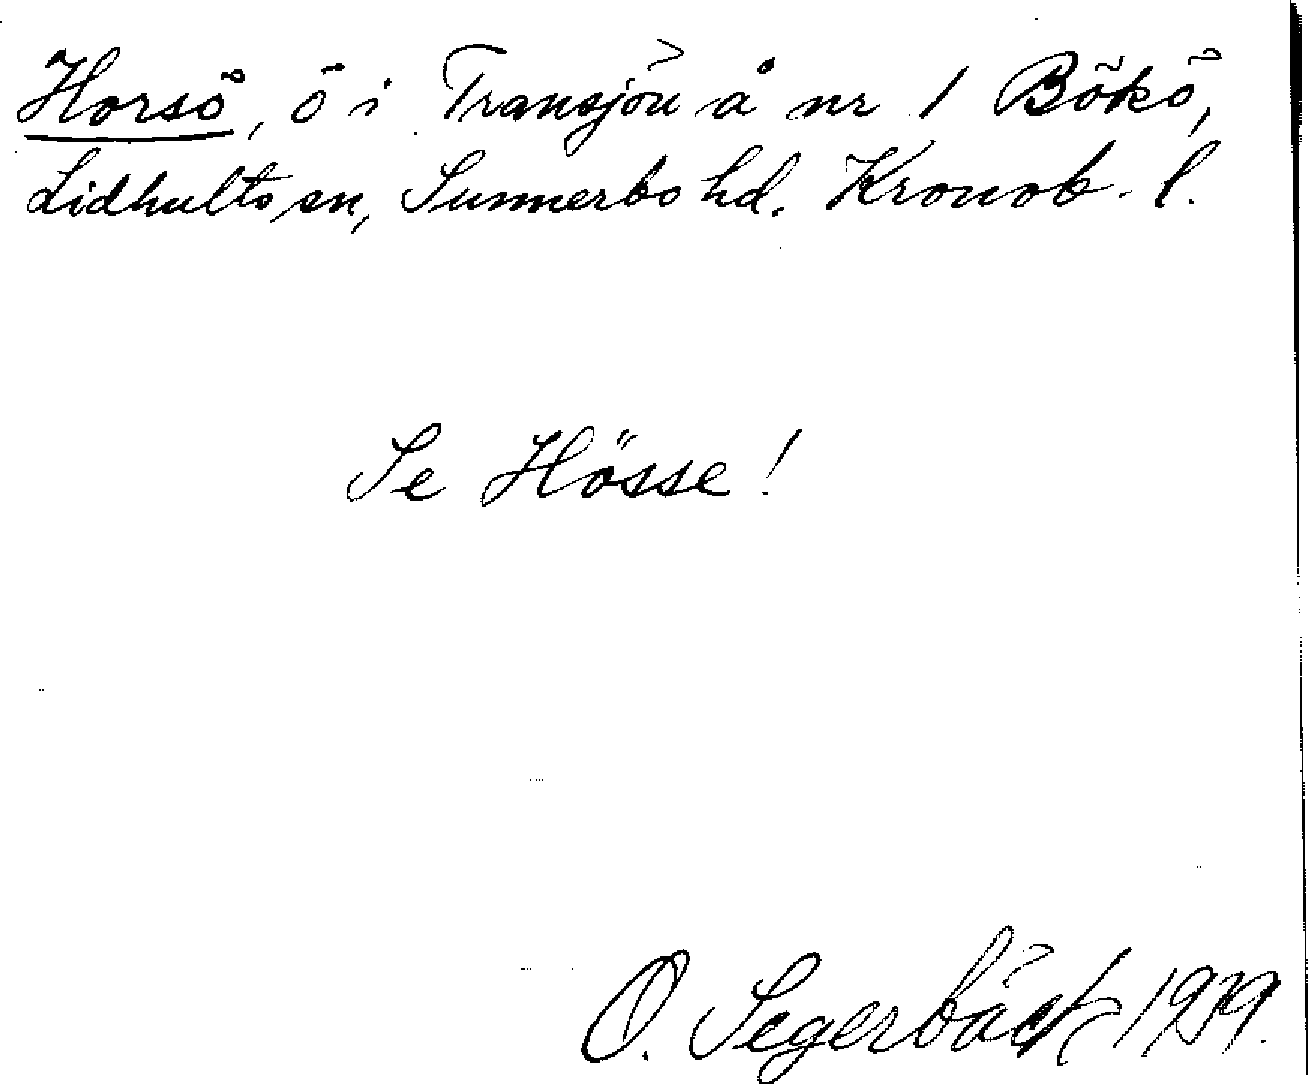 Horsö, ö i Transjön å nr 1 Bökö,
Lidhults sn, Sunnerbo hd. Kronob. l.
Se Hösse!
O. Segerbäck 1939.